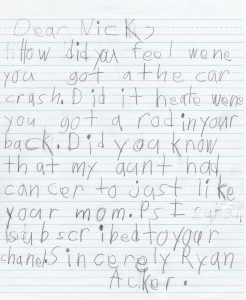 Dear Nick,
How did you feel wene
you got a the car
crash. Did it heate wene
you got a rod in your
back. Did you know
that my aunt had
cancer to just like
your mom. Ps I
subscribed to your
channel. Sincerely Ryan
Acker.